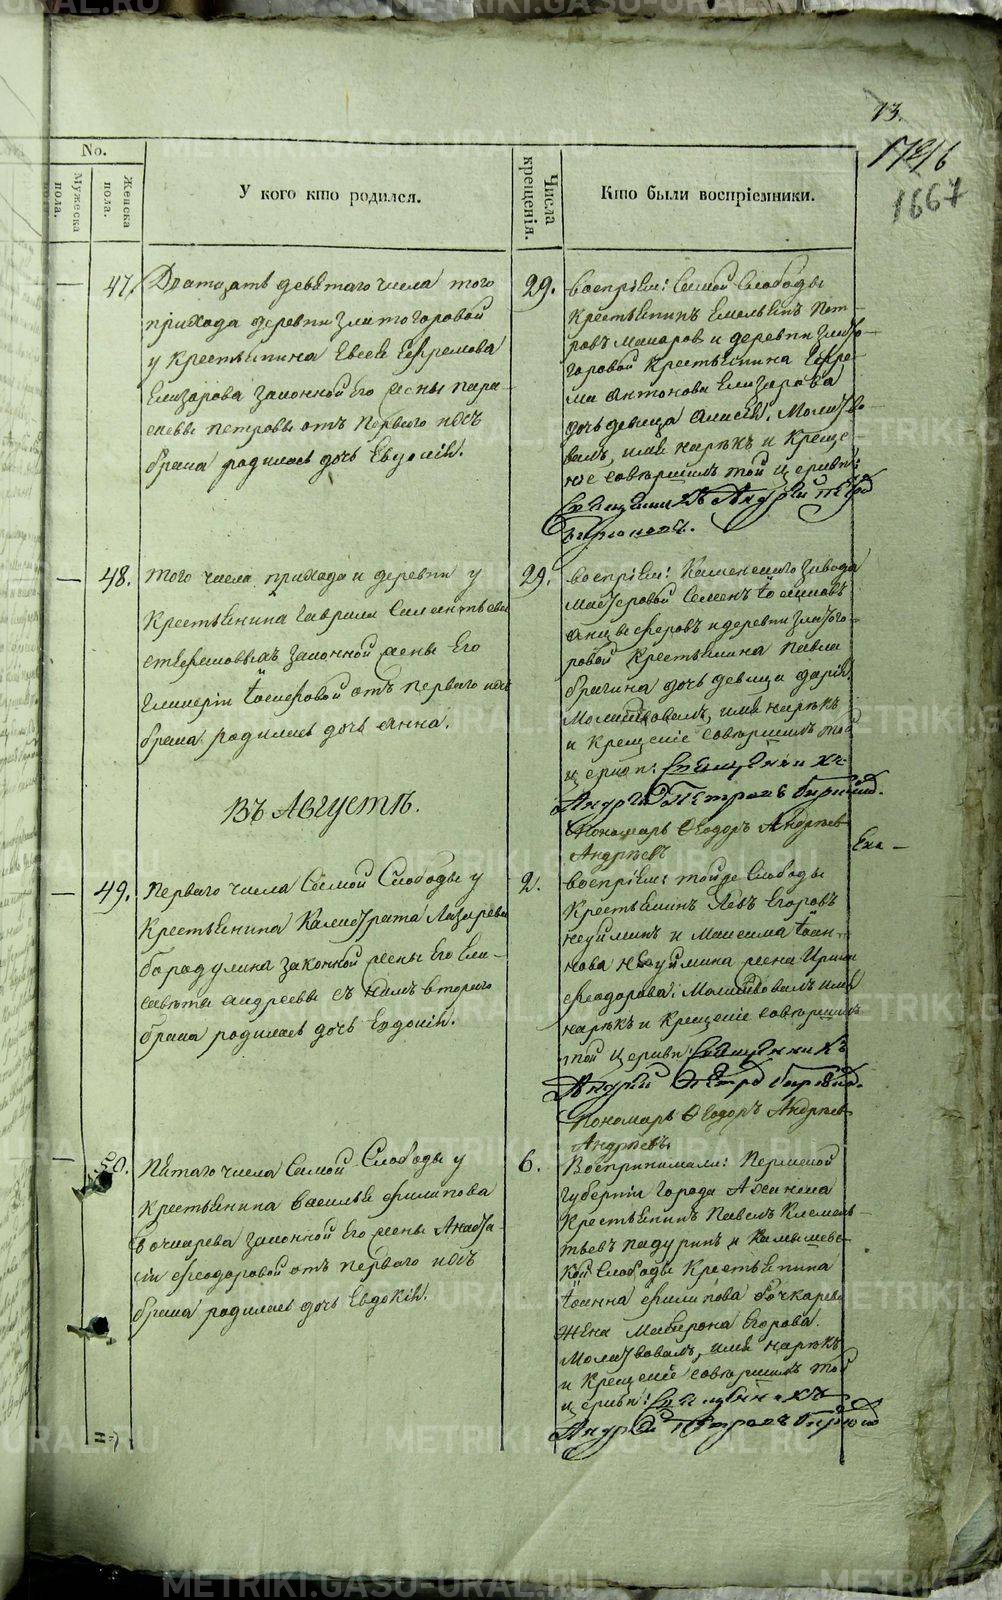 13.
1667
No.
Мужеска пола.
Женска пола.
У кого кто родился.
Числа крещенія.
Кто были воспріемники.
47.
Дватцать девятаго числа того
прихода деревни Златогоровой
у крестьянина Евсея Ефремова
Елизарова законной его жены Пара-
скевы Петровы отъ перваго ихъ
брака родилась дочь Евдокія.
29.
воспріем: Самой Слободы
крестьянинъ Емельянъ Пет-
ровъ Макаров и деревни Злато-
горовой крестьянина Ефре-
ма Антонова Елизарова
дочь девица
Молитво-
валъ, имя нарекъ и креще-
ніе совершилъ той церкви:
Священникъ Андрей Петро
Бирюковъ.
48.
того числа прихода и деревни у
крестьянина Гаврила
законной жены его
Гликеріи отъ перваго ихъ
брака родилась дочь Анна.
29.
воспріем: Каменскаго завода
мастеровой Семенъ Іоанновъ
и деревни Злато-
ровой крестьянина Павла
Брагина дочь девица Дарія.
Молитвовалъ, имя нарекъ
и крещеніе совершилъ той
церкви: Священникъ
Андрей Петровъ Бирюков.
Пономарь Ѳеодоръ Андреев
Андреевъ
Въ Августѣ.
49.
Перваго числа Самой Слободы у
крестьянина Калистрата Лазарева
Бородулина законной жены его Ели-
саветы Андреевы съ нимъ втораго
брака родилась дочь Евдокія.
2.
воспріем: той же Слободы
крестьянинъ Левъ Егоровъ
Неуйминъ и Максима Іоан-
нова Неуймина жена Ирина
Феодорова. Молитвовалъ имя
нарекъ и крещеніе совершилъ
той церкви Священникъ
Андрей Петро Бирюков.
Пономарь Ѳеодоръ Андреев
Андреевъ.
50.
Пятаго числа Самой Слободы у
крестьянина Василья Филипова
Бочкарева законной его жены Анаста-
сіи Феодоровой отъ перваго ихъ
брака родилась дочь Евдокія.
6.
Воспринимали: Пермской
губерніи города
крестьянинъ Павелъ Клемень-
тьевъ Падуринъ и Камышевс-
кой Слободы крестьянина
Іоанна Филипова Бочкарева
жена Матрона Егорова.
Молитвовалъ, имя нарекъ
и крещеніе совершилъ той
церкви: Священникъ
Андрей Петровъ Бирюков
METRIKI.GASO-URAL.RU